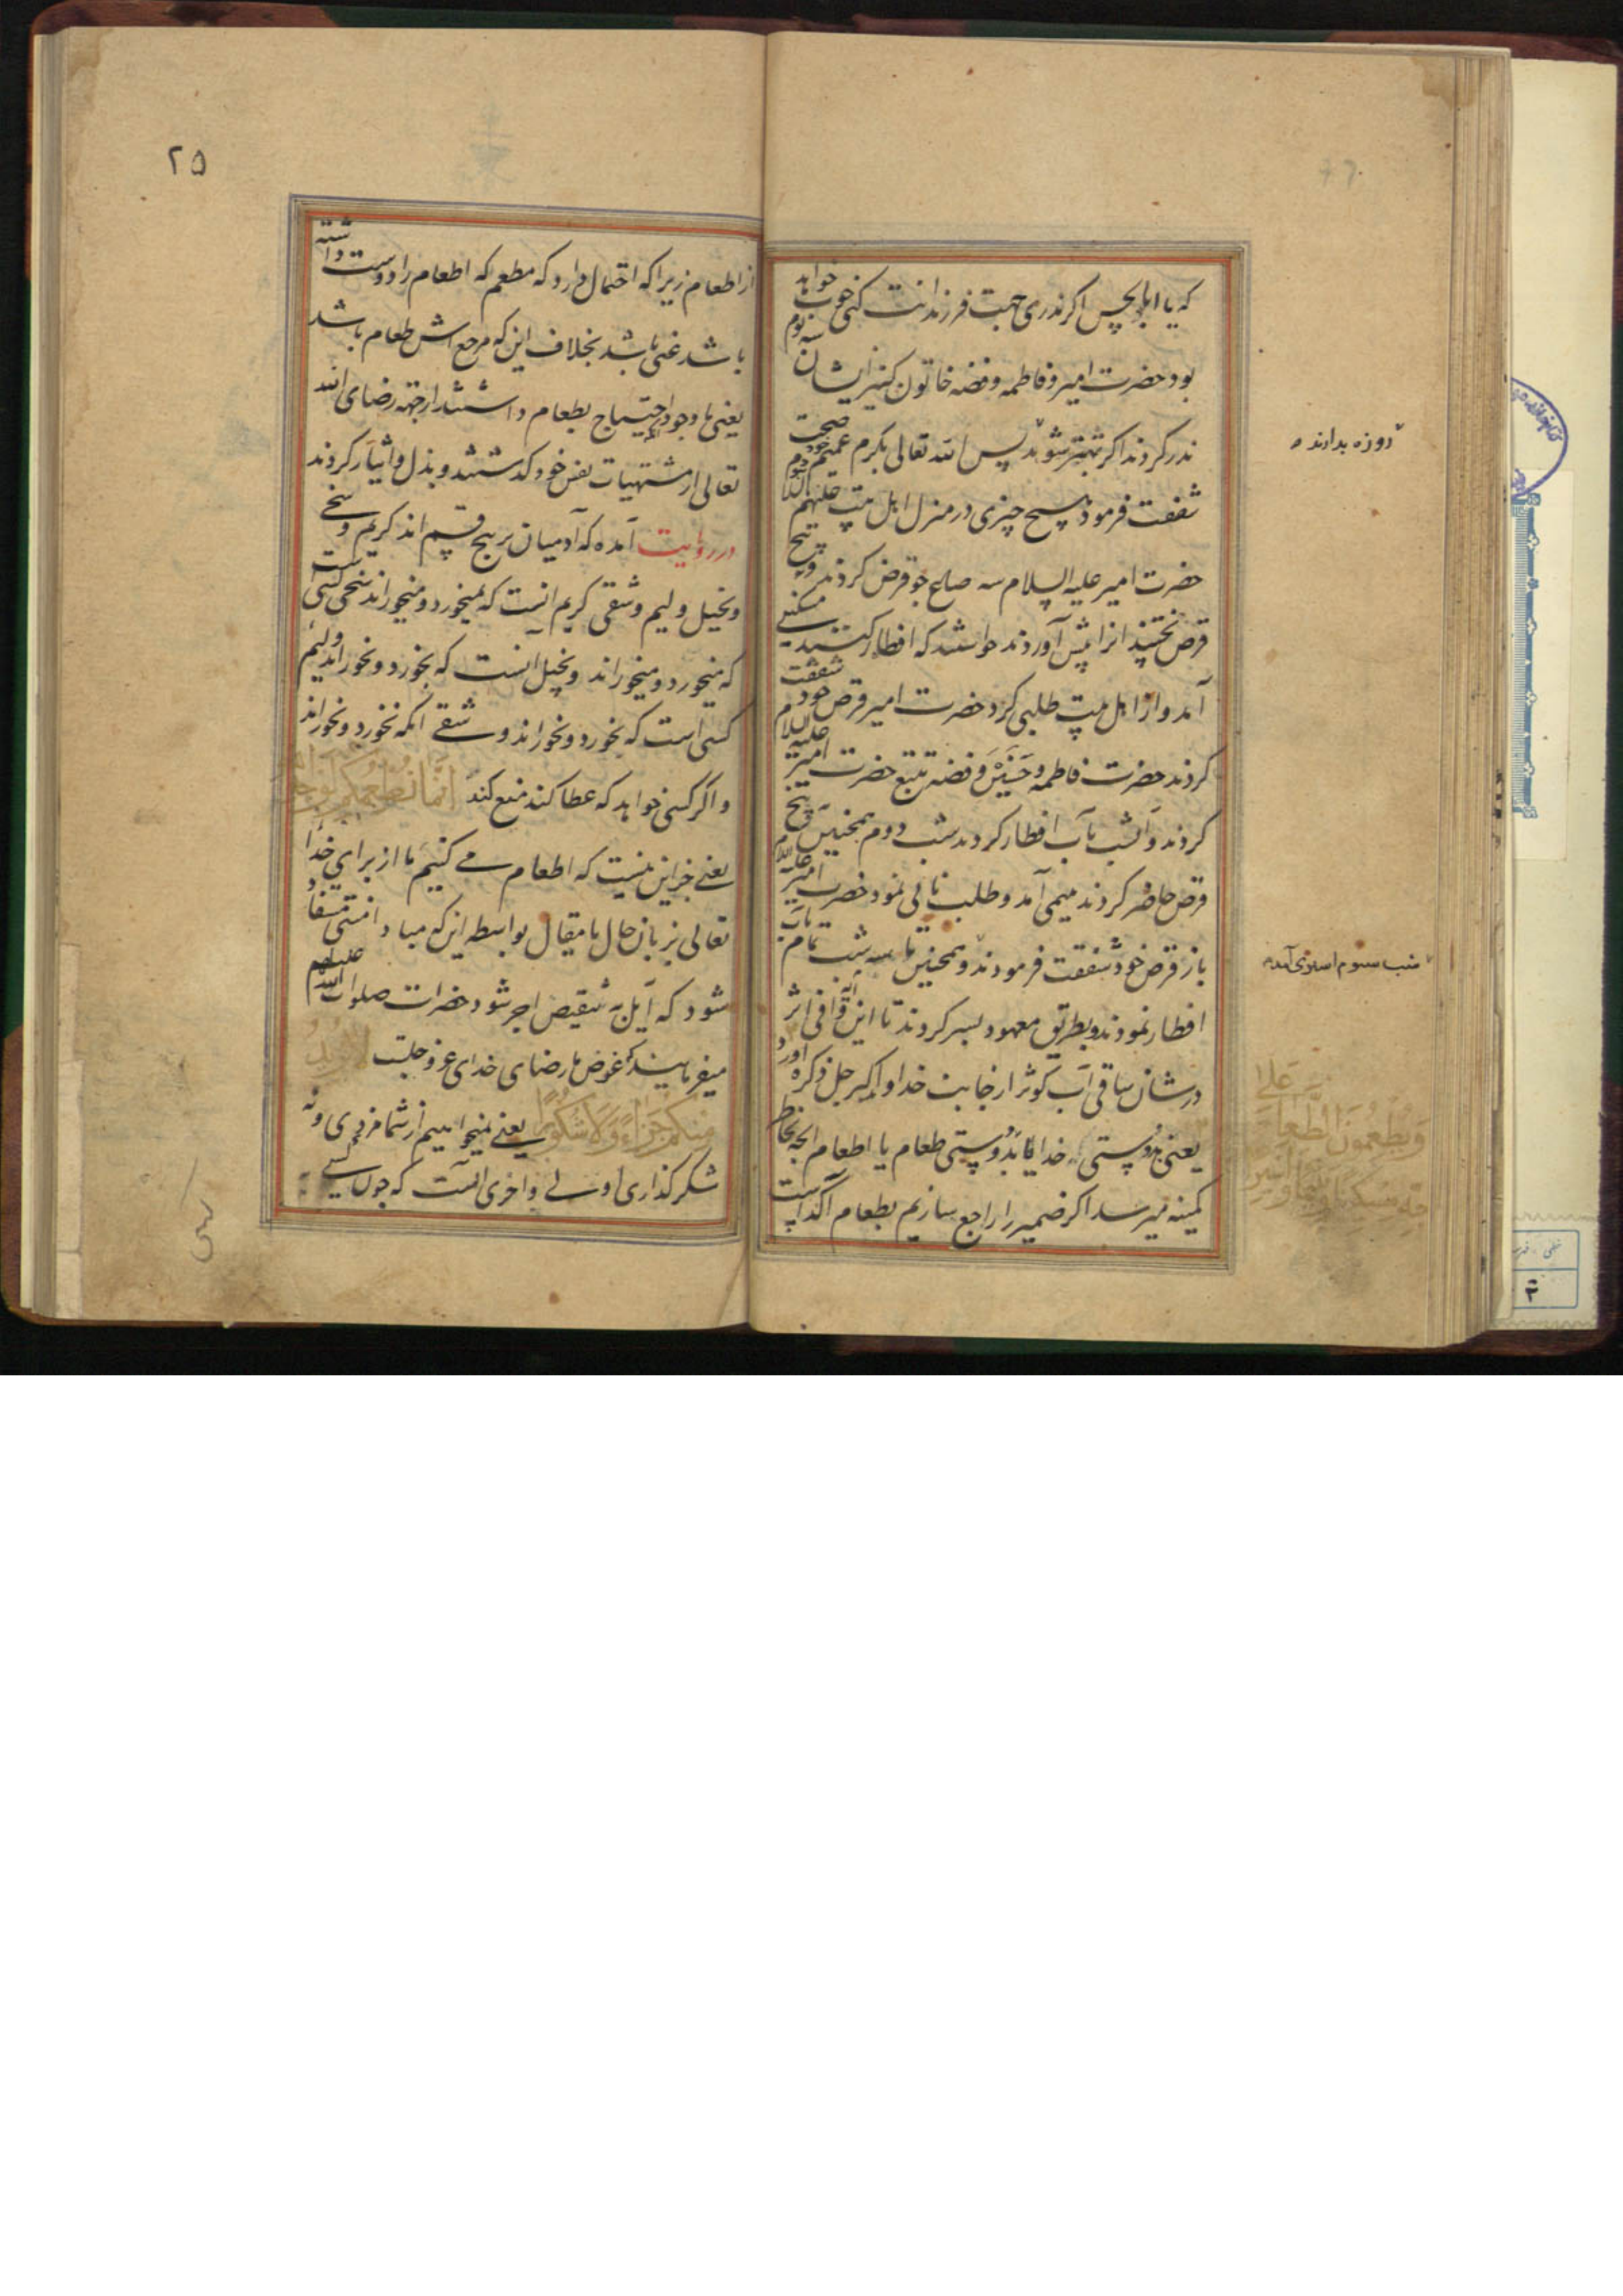 که یا ابا الحسن اگر نذری جهت فرزندانت کنی خوب خواهد
بود حضرت امیر و فاطمه و فضه خاتون کنیز ایشان
نذر کردند اگر بهتر شوند پس الله تعالی بکرم عمیم خود صحت
شفقت فرمود هیچ چیزی در منزل اهل بیت علیهم السلام
حضرت امیر علیه السلام سه صاع جو قرض کردند و پنج
قرص پختند انرا پیش آوردند خواستند که افطار کنند مسکینی
آمد و از اهل بیت طلبی کرد حضرت امیر قرص خود شفقت
کردند حضرت فاطمه و حسنین و فضه تتبع حضرت امیر علیه السلام
کردند و آنشب بآب افطار کردند شب دوم همچنین پنج
قرص حاضر کردند یتیمی آمد و طلب نانی نمود حضرت امیر علیه السلام
باز قرص خود شفقت فرمودند و همچنین تا سه شب تمام بآب
افطار نمودند و بطریق معهود بسر کردند تا این آیه وافی اثر
در شان ساقی آب کوثر از جانب خداوند اکبر جل ذکره آورد
یعنی بدوستی خدا یا بدوستی طعام یا اطعام آنچه بخاطر
کمینه میرسد اگر ضمیر را راجع سازیم بطعام آکد است
روزه بدارند
شب سوم اسیری آمد
وَیُطْعِمُونَ الطَّعَامَ عَلَی
حُبِّهِ مِسْکِینًا وَیَتِیمًا وَأَسِیرًا
۲۵
از اطعام زیرا که احتمال دارد که مطعم که اطعام را دوست داشته
باشد غنی باشد بخلاف این که مرجع اش طعام باشد
یعنی با وجود احتیاج بطعام داشتند از جهه رضای الله
تعالی از مشتهیات نفس خود گذشتند و بذل و ایثار کردند
در روایت آمده که آدمیان بر پنج قسم اند کریم و سخی
و بخیل و لیم و شقی کریم آنست که نمیخورد و میخوراند سخی کسی است
که میخورد و میخوراند و بخیل آنست که بخورد و نخوراند و لیم
کسی است که نخورد و نخوراند و شقی آنکه نخورد و نخوراند
و اگر کسی خواهد که عطا کند منع کند اِنَّمَا نُطْعِمُکُمْ لِوَجْهِ اللّٰهِ
یعنی جز این نیست که اطعام می کنیم ما از برای خدا
تعالی بزبان حال یا مقال بواسطه این که مبادا منتی مستفاد
شود که آیل به تنقیص اجر شود حضرات صلوات الله علیهم
میفرمایند که غرض ما رضای خدای عز و جلست لَا نُرِیدُ
مِنْکُمْ جَزَاءً وَلَا شُکُورًا یعنی نمیخواهیم از شما مزدی و نه
شکر گذاری اولی و احری آنست که چون کسی